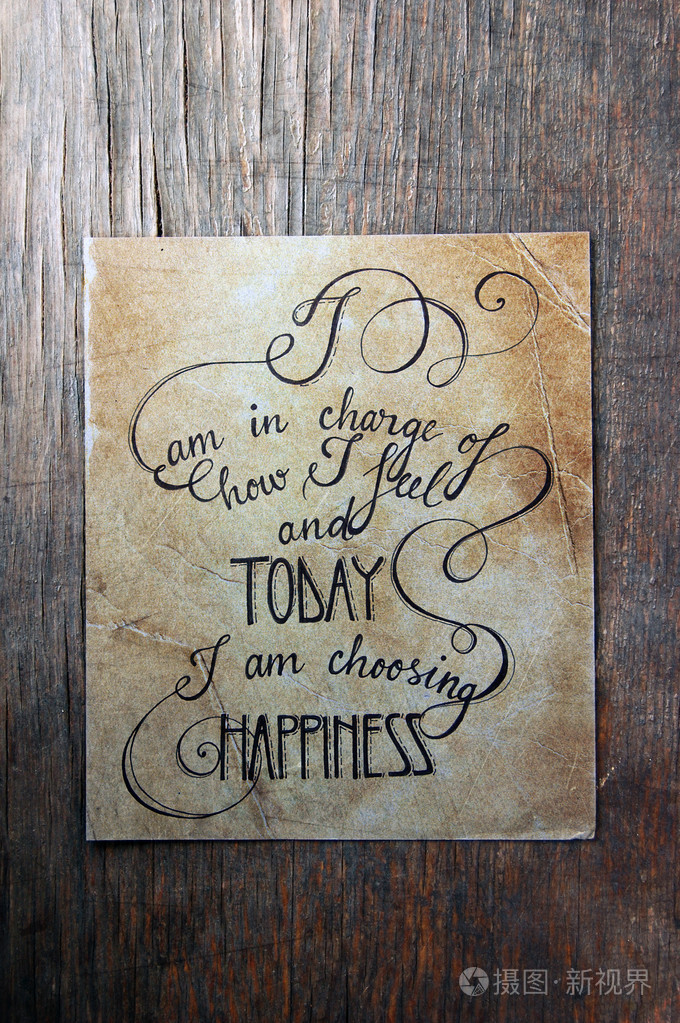 I
am in charge of
how I feel
and
TODAY
I am choosing
HAPPINESS
摄图·新视界